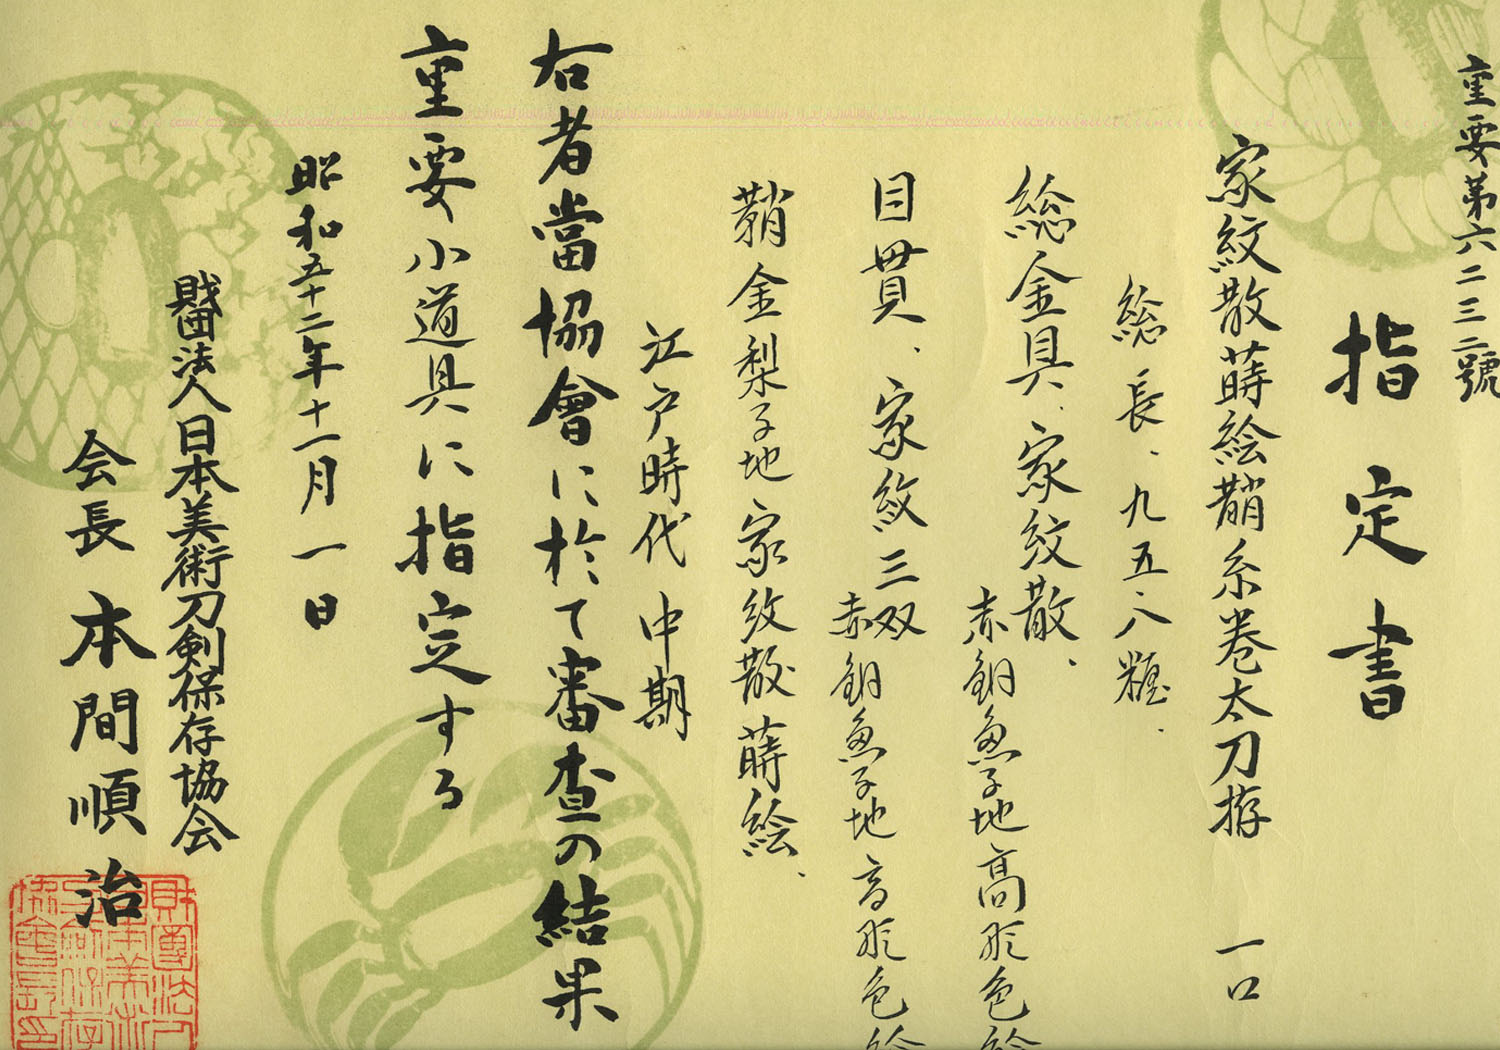 重要第六二三二號
指定書
家紋散蒔絵鞘糸巻太刀拵 一口
総長、九五・八糎、
総金具、家紋散、赤銅魚子地高彫色絵
目貫、家紋三双 赤銅魚子地高彫色絵
鞘金梨子地家紋散蒔絵、
江戸時代中期
右者當協會に於て審査の結果
重要小道具に指定する
昭和五十二年十一月一日
財団法人日本美術刀剣保存協会
会長 本間順治